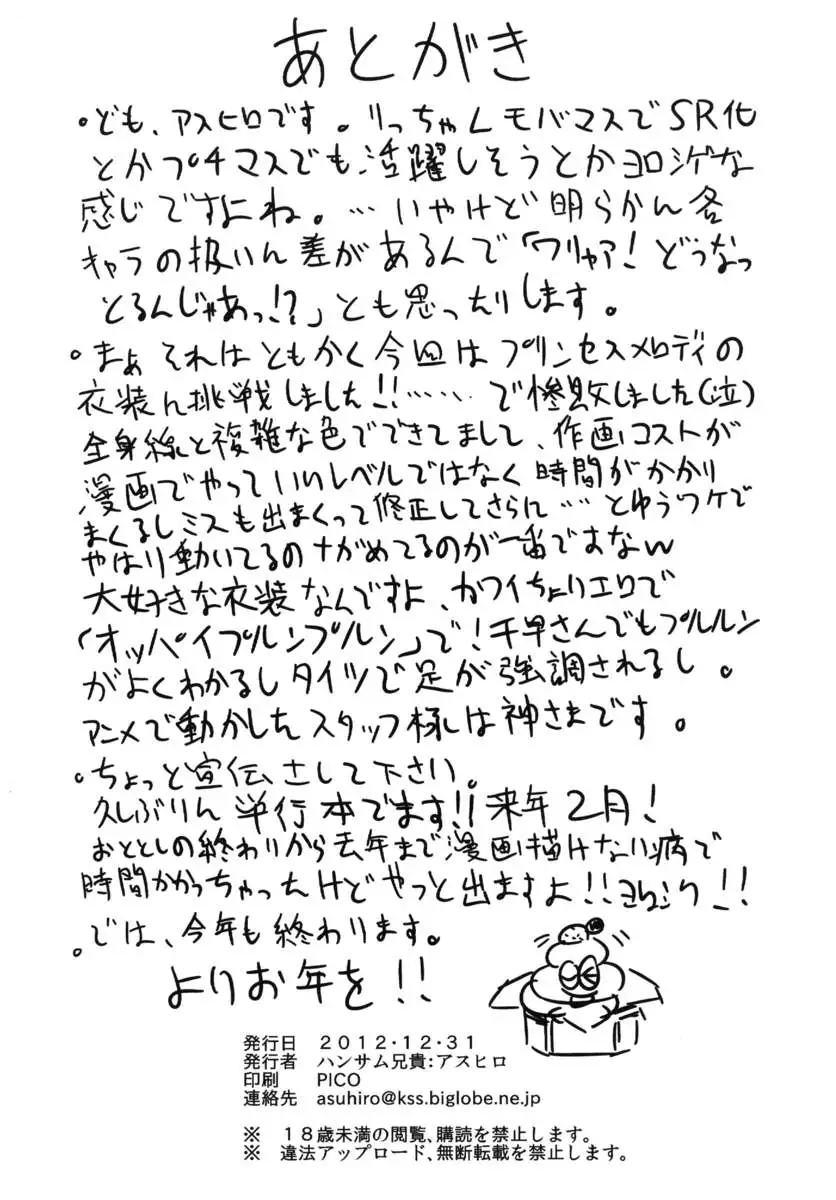 あとがき
・ども、アスヒロです。りっちゃんモバマスでSR化
とかプチマスでも活躍しそうとかヨロシゲな
感じですよね。…いやけど明らかん各
キャラの扱いん差があるんで「ワリャア!どうなっ
とるんじゃあっ!?」とも思ったりします。
・まぁそれはともかく今回はプリンセスメロディの
衣装ん挑戦しました!!……で惨敗しました(泣)
全身線と複雑な色でできてまして、作画コストが
漫画でやっていいレベルではなく時間がかかり
まくるしミスも出まくって修正してさらに…とゆうワケで
やはり動いてるのながめてるのが一番ですなw
大好きな衣装なんですよ、カワイイちょいエロで
「オッパイプルンプルン」で!千早さんでもプルルン
がよくわかるしタイツで足が強調されるし。
アニメで動かしたスタッフ様は神さまです。
・ちょっと宣伝さして下さい。
久しぶりん単行本でます!!来年2月!
おととしの終わりから去年まで漫画描けない病で
時間かかっちゃったけどやっと出ますよ!!ヨロシク!!
。では、今年も終わります。
よりお年を!!
発行日 2012・12・31
発行者 ハンサム兄貴:アスヒロ
印刷 PICO
連絡先 asuhiro@kss.biglobe.ne.jp
※ 18歳未満の閲覧、購読を禁止します。
※ 違法アップロード、無断転載を禁止します。